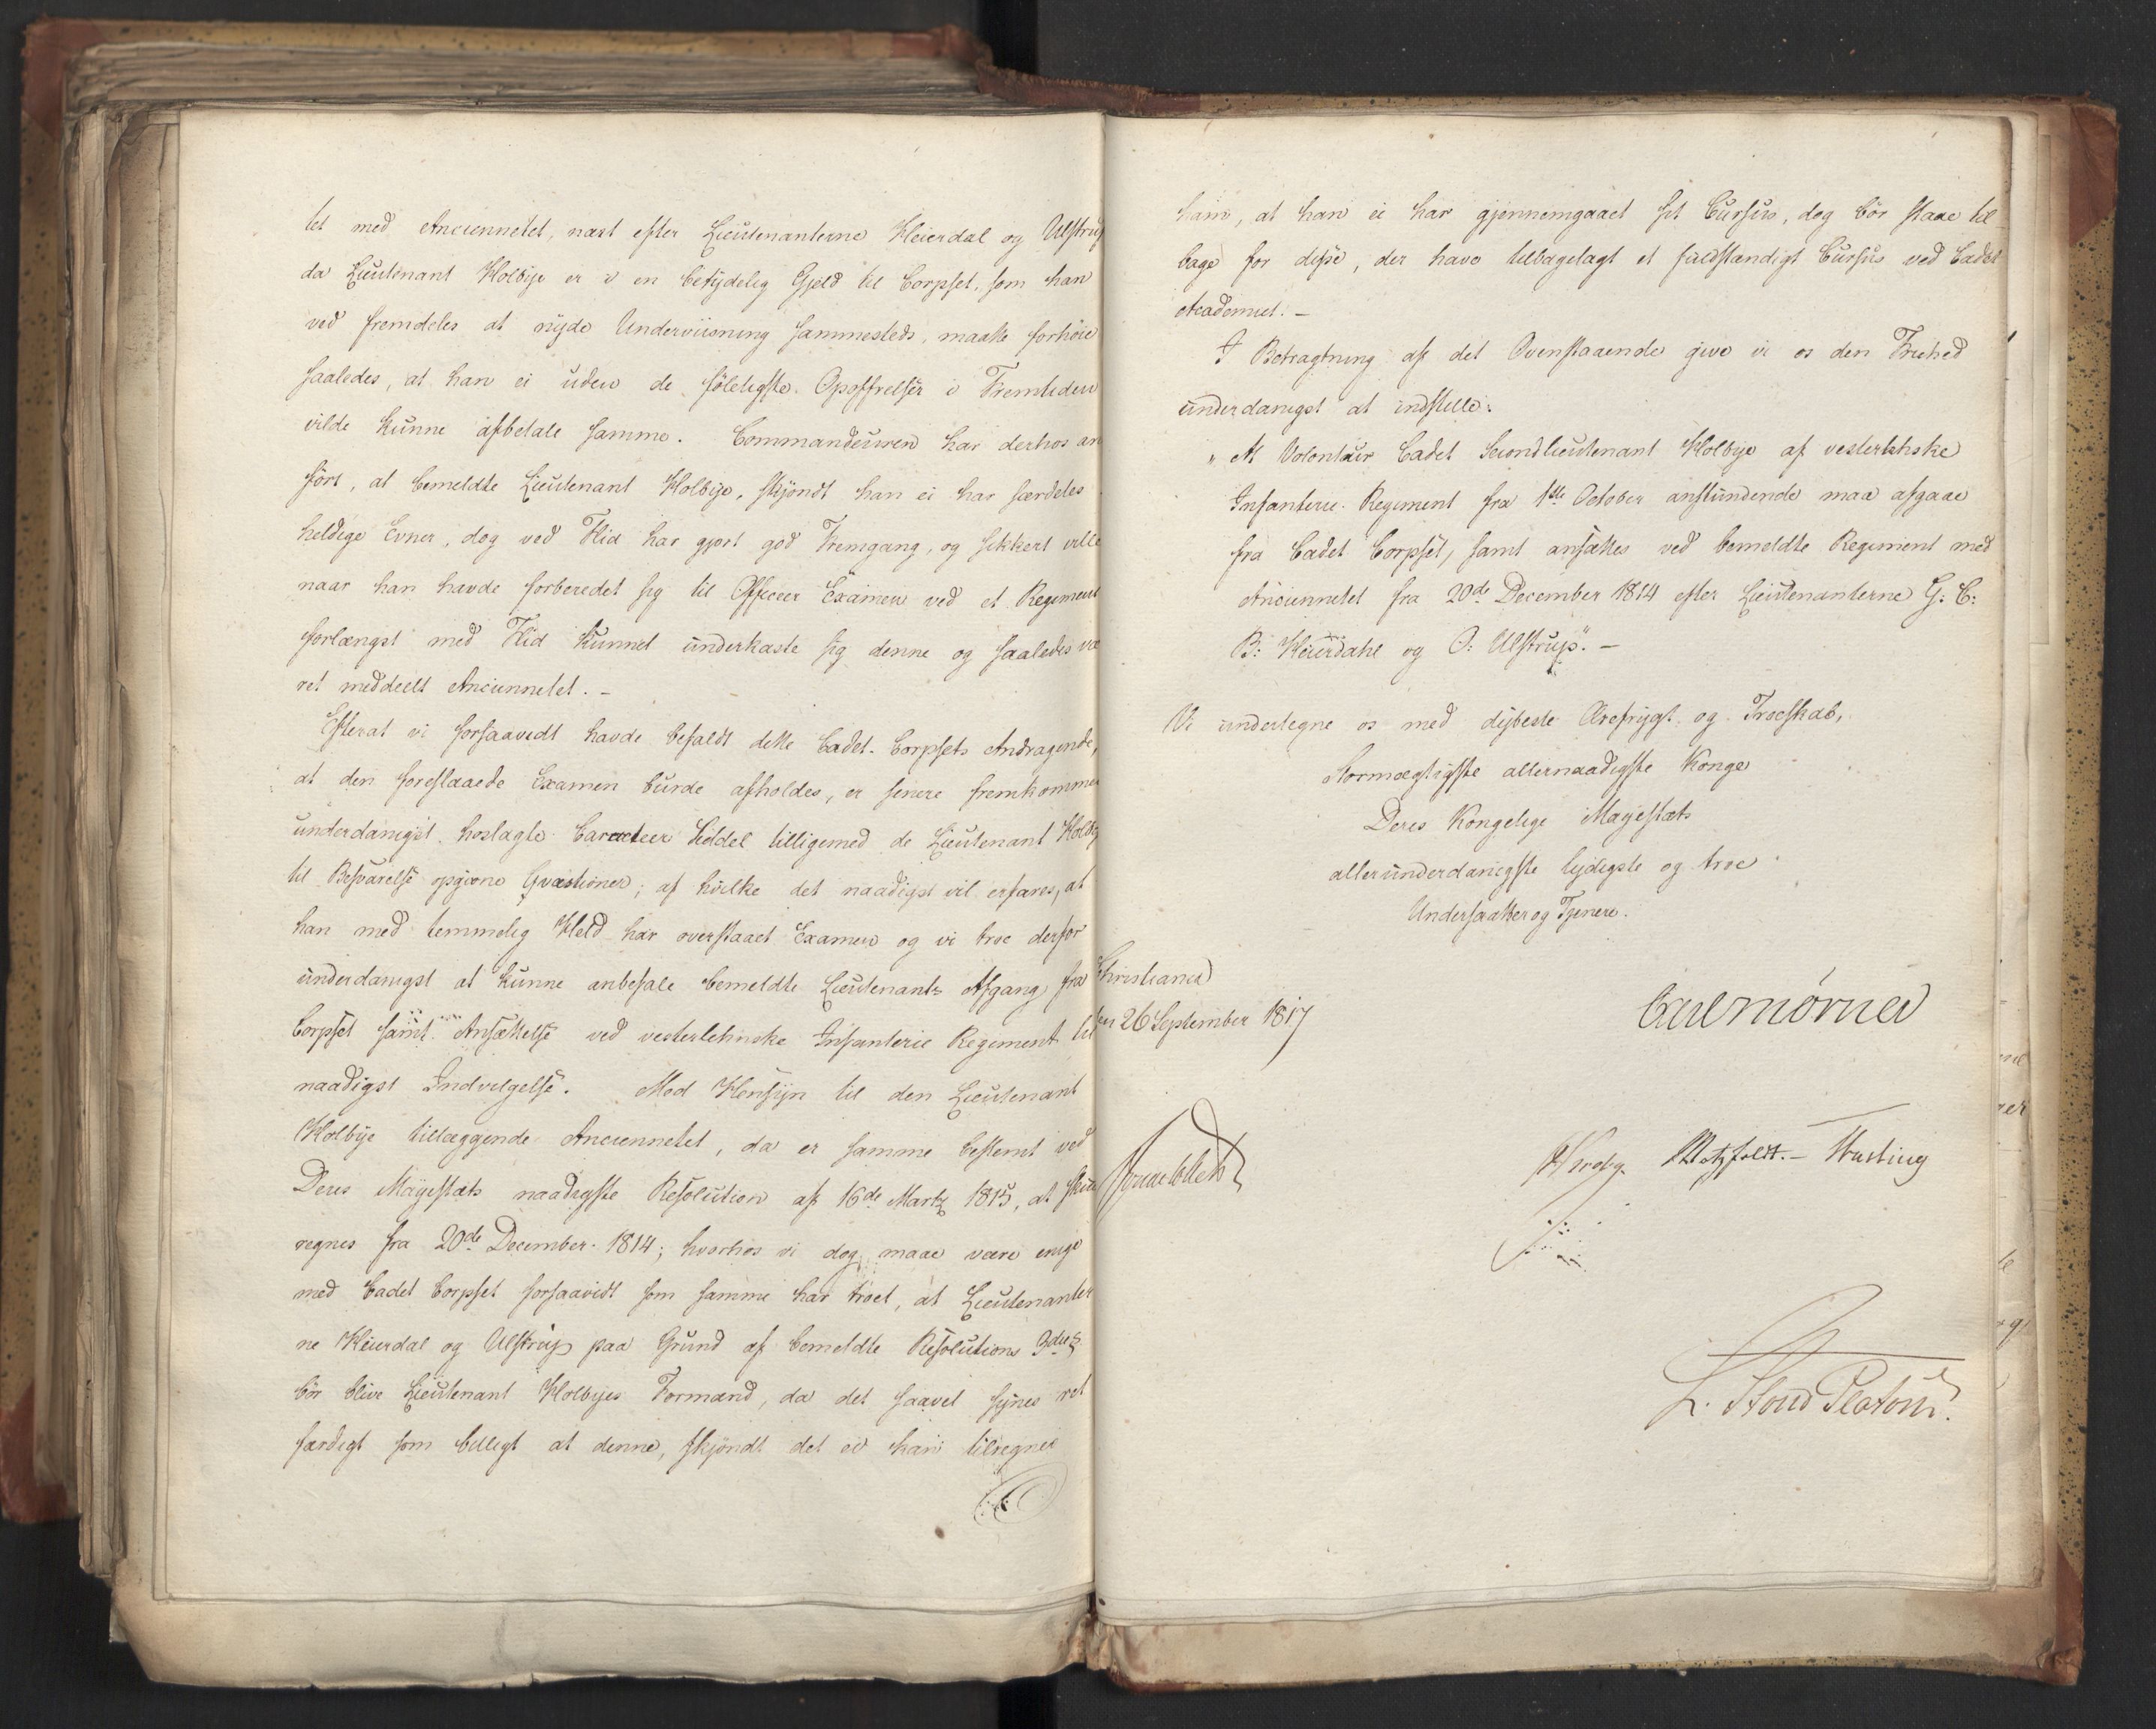 tet med Anciennetet, næst efter Lieutenanterne Heierdal og Ulstrup
da Lieutenant Holbye er i en betydelig Gjeld til Corpset, som han
ved fremdeles at nyde Underviisning sammesteds, maatte forhöie
saaledes, at han ei uden de föleligste Opoffrelser i Fremtiden
vilde kunne afbetale samme. Commandeuren har derhos an
fört, at bemeldte Lieutenant Holbye, skjöndt han ei har særdeles
heldige Evner, dog ved Flid har gjort god Fremgang, og sikkert ville
naar han havde forberedet sig til Officeer Examen ved et Regiment
forlængst med Flid kunnet underkaste sig denne og saaledes væ
ret meddeelt Anciennetet. –
Efterat vi forsaavidt havde befaldt dette Cadet-Corpsets Andragende,
at den foreslaaede Examen burde afholdes, er senere fremkommen
underdanigst hoslagte Caracteer Seddel tilligemed de Lieutenant Holbye
til Besvarelse opgivne Qvæstioner; af hvilke det naadigst vil erfares, at
han med temmelig Held har overstaaet Examen og vi troe derfor
underdanigst at kunne anbefale bemeldte Lieutenants Afgang fra
Corpset samt Ansættelse ved vesterlehnske Infanterie Regiment til
naadigst Indvilgelse. Med Hensyn til den Lieutenant
Holbye tillæggende Anciennetet, da er samme bestemt ved
Deres Majestæts naadigste Resolution af 16de Martz 1815, at skulle
regnes fra 20de December 1814; hvorhos vi dog maae være enige
med Cadet Corpset forsaavidt som samme har troet, at Lieutenanter
ne Heierdal og Ulstrup paa Grund af bemeldte Resolutions
bör blive Lieutenant Holbyes Formænd, da det saavel synes ret
færdigt som billigt at denne, skjöndt det ei kan tilregnes
ham, at han ei har gjennemgaaet sit Cursus, dog bör staae til
bage for disse, der have tilbagelagt et fuldstændigt Cursus ved Cadet
Academiet. –
I Betragtning af det Ovenstaaende give vi os den Friehed
underdanigst at indstille:
"At Volontair Cadet Secondlieutenant Holbye af vesterlehnske
Infanterie Regiment fra 1ste October anstundende maa afgaae
fra Cadet Corpset, samt ansættes ved bemeldte Regiment med
Anciennetet fra 20de December 1814 efter Lieutenanterne G: C:
B: Heierdahl og O: Ulstrup". –
Vi undertegne os med dybeste Ærefrygt og Troeskab,
Stormægtigste allernaadigste Konge
Deres Kongelige Majestæts
allerunderdanigste lydigste og troe
Undersaatter og Tjenere.
Christiania
den 26 September 1817
Carl Mörner
Krogh. Motzfeldt. – Hasting
L. Stoud Platou.